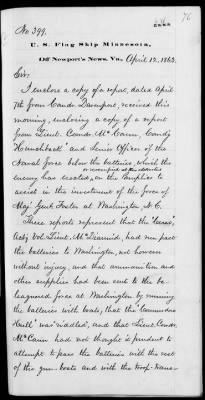 76
No. 299.
U. S. Flag Ship Minnesota,
Off Newport's News, Va., April 12, 1863.
Sir:
I enclose a copy of a report, dated April
7th from Comdr. Davenport, received this
morning, enclosing a copy of a report
from Lieut. Comdr. McCann, Comd'g
"Hunchback" and Senior Officer of the
Naval force below the batteries, which the
enemy has erected, on the Pamplico to
assist in the investment of the force of
Maj. Genl. Foster at Washington N.C.
These reports represent that the "Ceres",
Act'g Vol. Lieut. McDiarmid, had run past
the batteries to Washington, not however
without injury, and that ammunition and
other supplies had been sent to the be-
leaguered force at Washington by running
the batteries with boats; that the "Commodore
Hull" was riddled; and that Lieut. Comdr.
McCann had not thought it prudent to
attempt to pass the batteries with the rest
of the gun-boats and with the troop-trans-